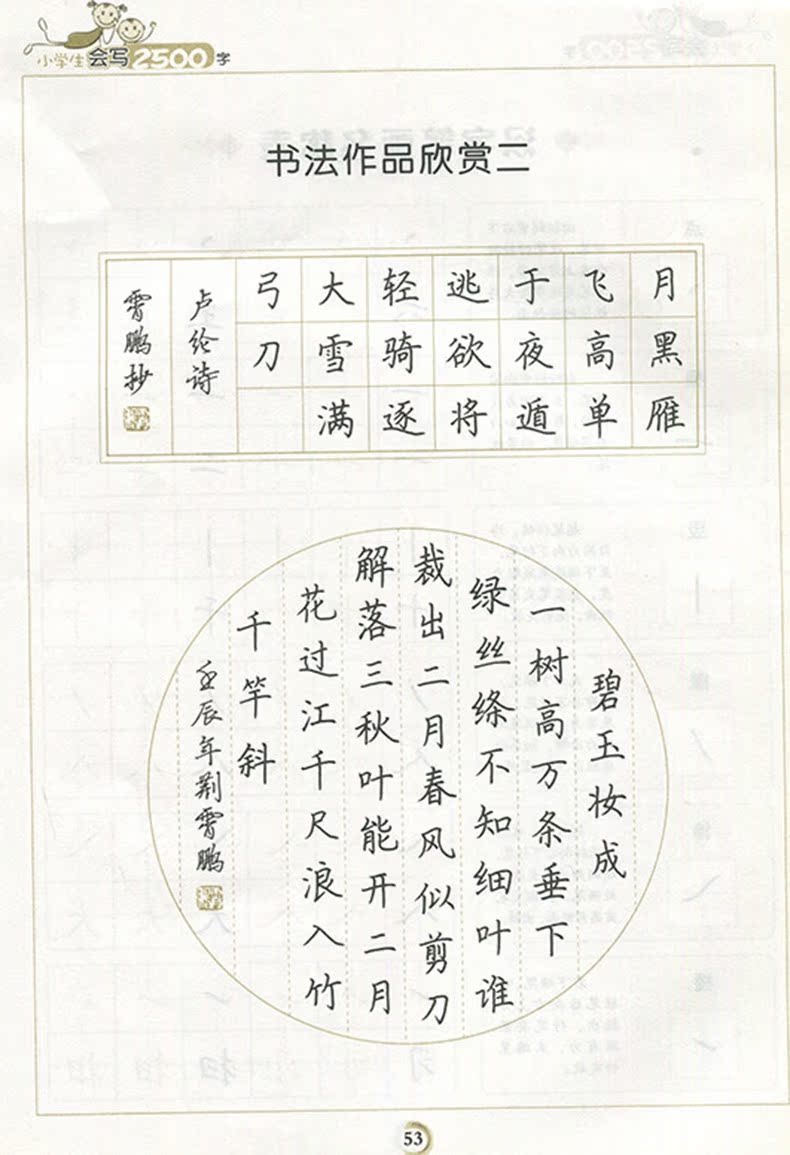 小学生会写2500字
书法作品欣赏二
月黑雁
飞高单
于夜遁
逃欲将
轻骑逐
大雪满
弓刀
卢纶诗
霄鹏抄
碧玉妆成
一树高万条垂下
绿丝绦不知细叶谁
裁出二月春风似剪刀
解落三秋叶能开二月
花过江千尺浪入竹
千竿斜
壬辰年荆霄鹏
53